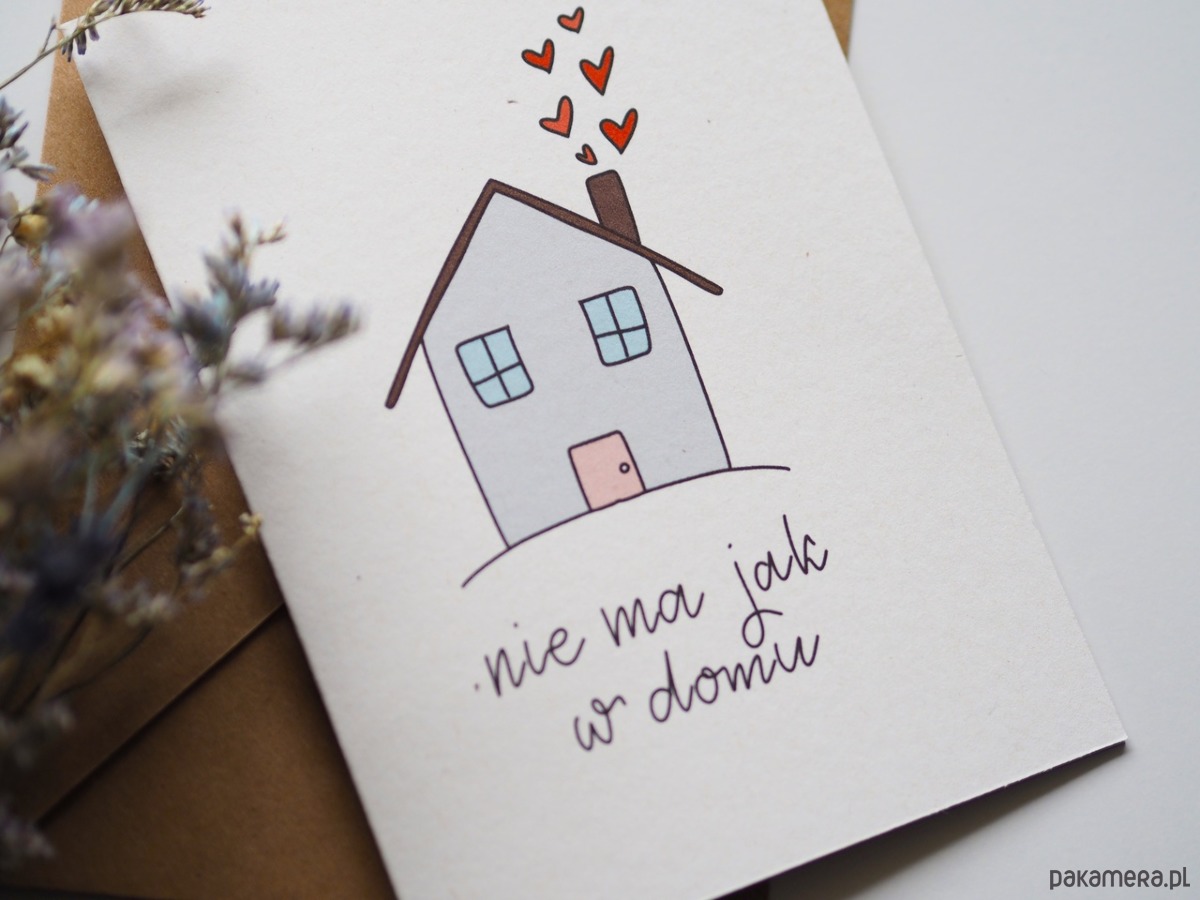 nie ma jak
w domu
pakamera.pl